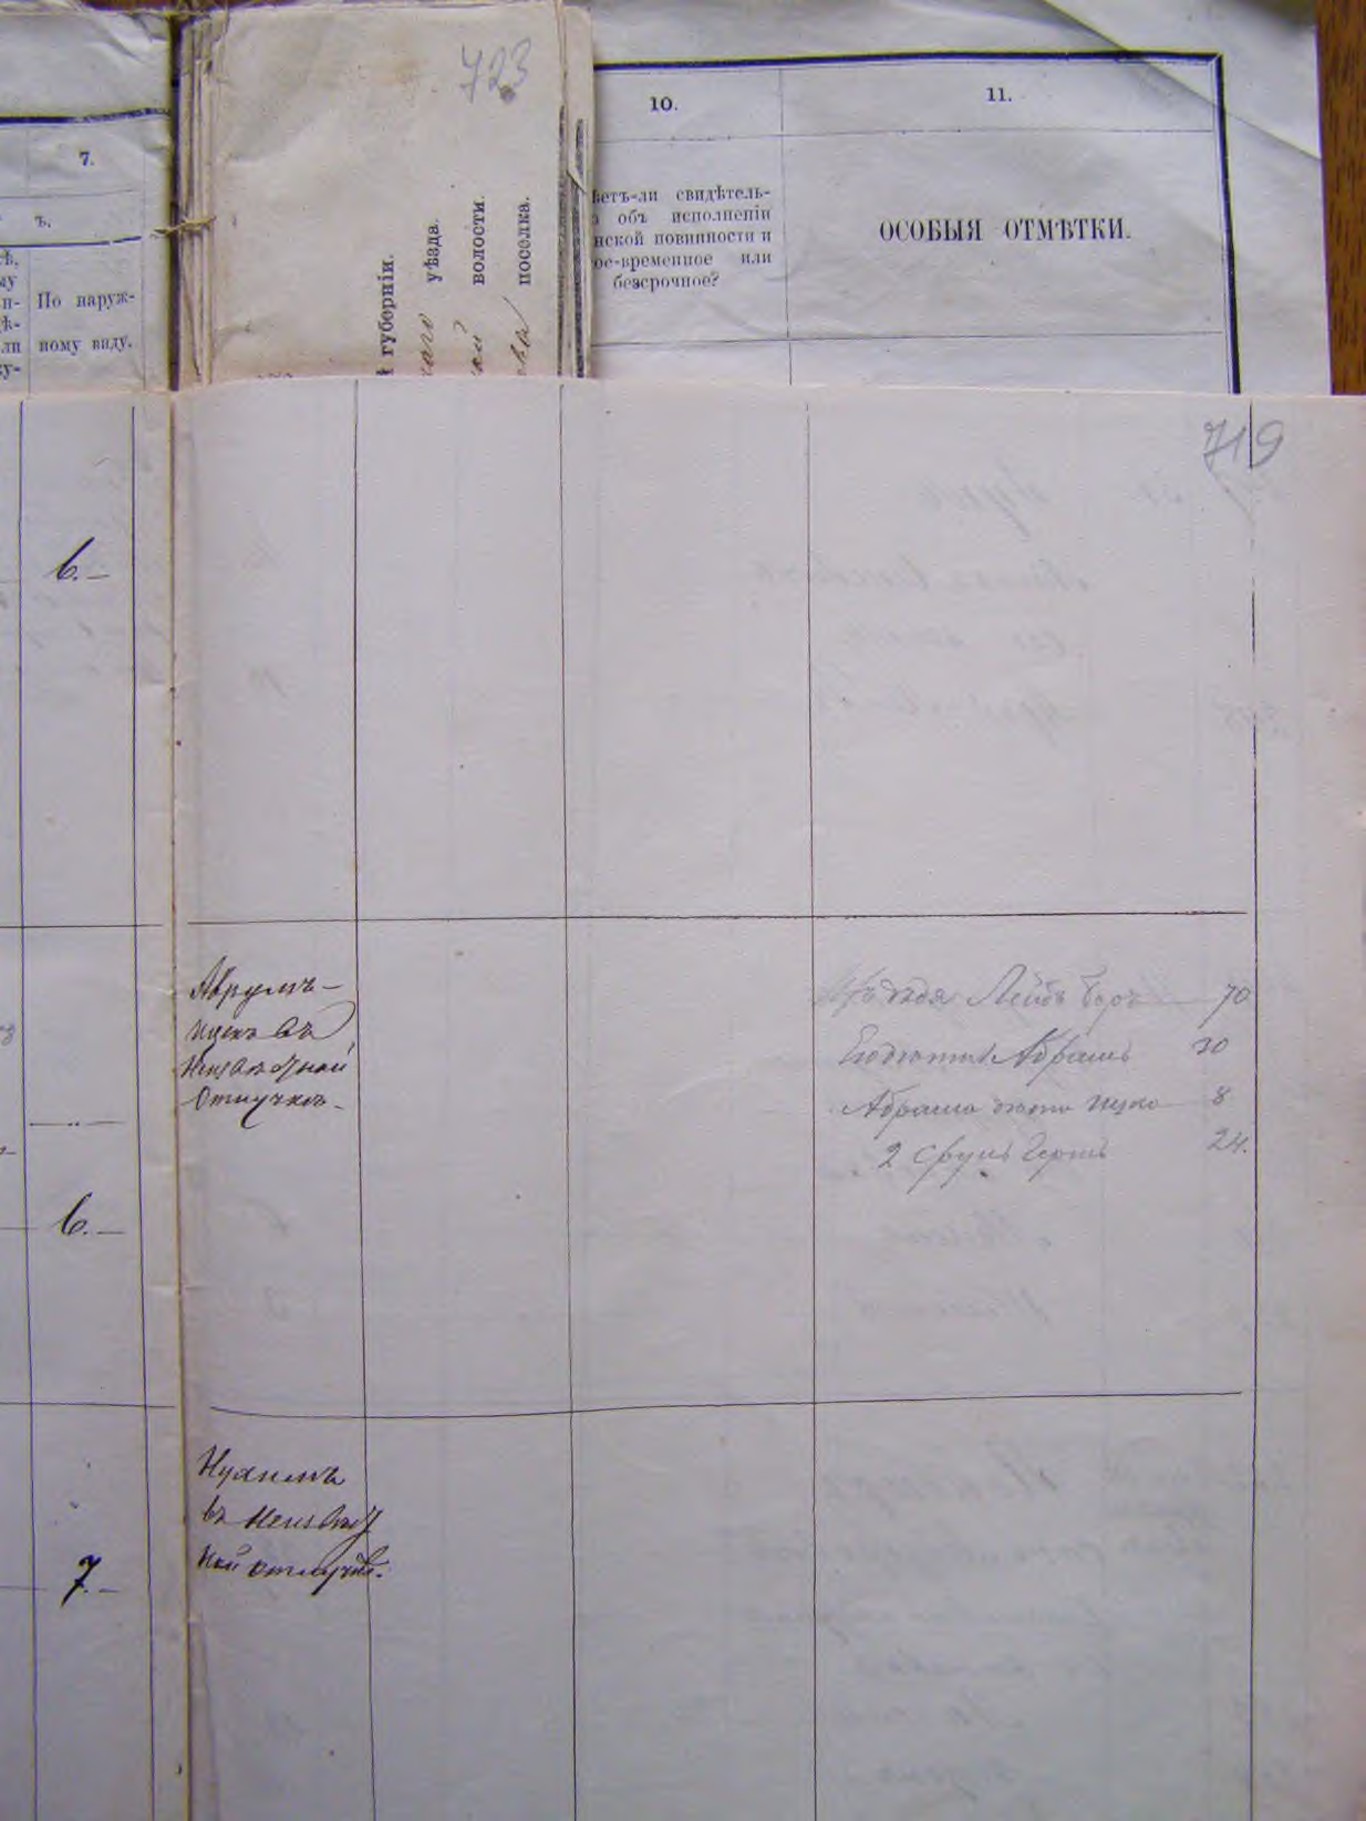 723
10.
11.
7.
ъ.
По наруж-
ному виду.
губерніи.
уѣзда.
волости.
поселка.
ѣетъ-ли свидѣтель-
объ исполненіи
нской повинности и
ое-временное или
безсрочное?
ОСОБЫЯ ОТМѢТКИ.
719
6.—
Аврумъ-
Ицекъ въ
Неизвѣстной
Отлучкѣ.
дядя Лейбъ Беръ 70
Абрамъ 30
Абрама Ицко 8
2 Сруль Гершъ 24.
6.—
Нухимъ
въ Неизвѣст
ной отлучкѣ.
7.—